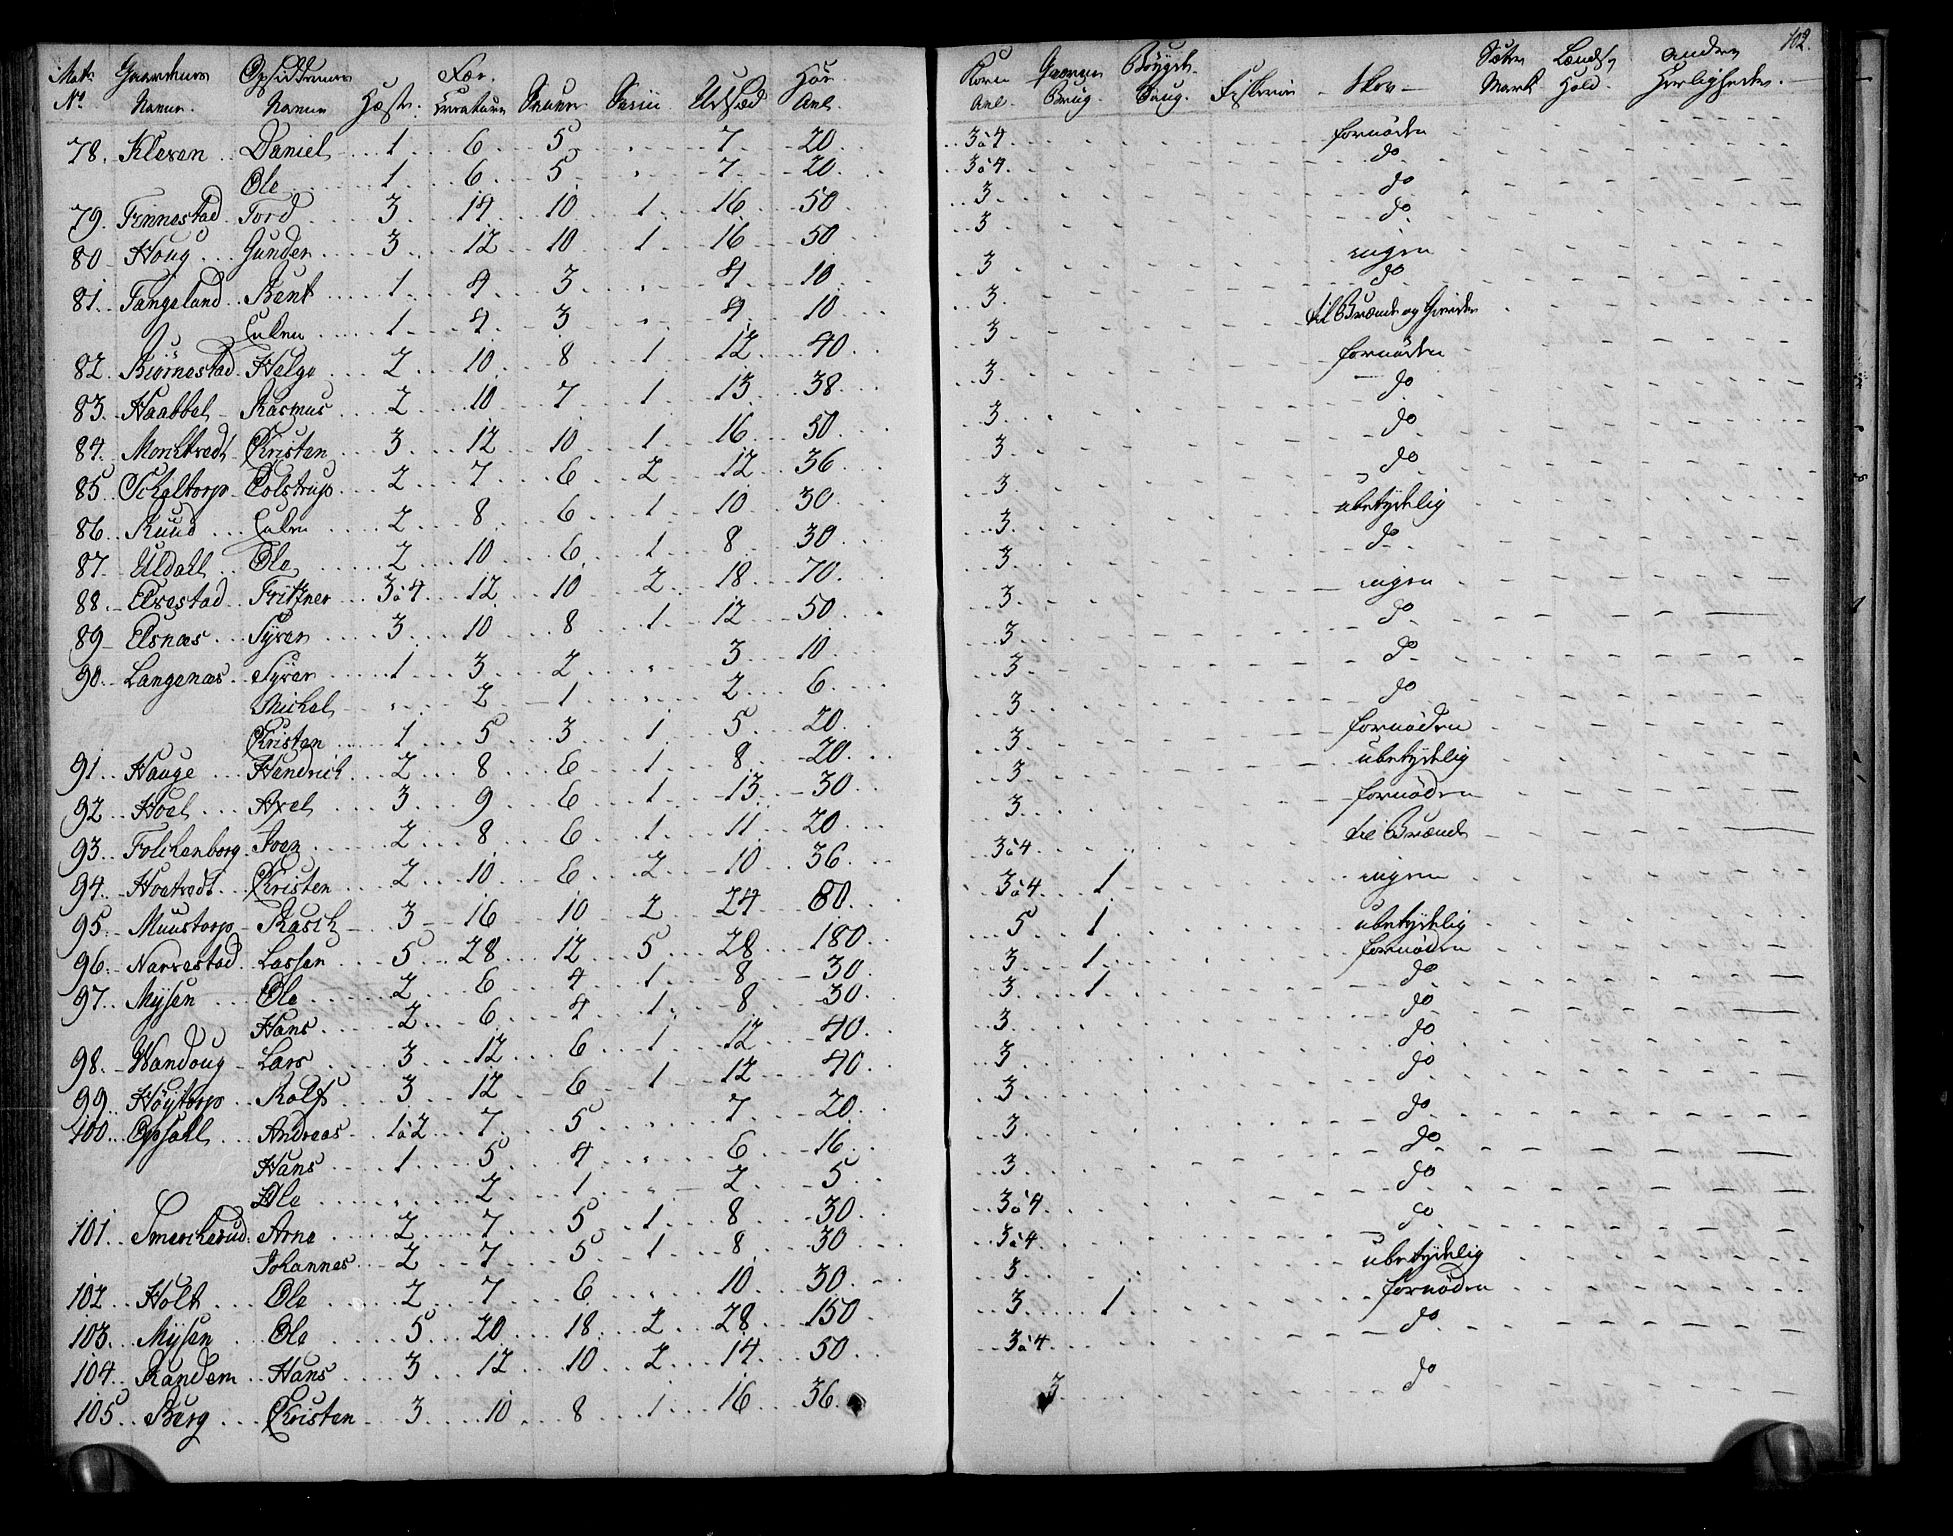 102.
Matr: No Gaardenes Navne. Opsiddernes Navne Heste. Fæe. Kreature Sauer Sviin Udsæd Høe Avl. Korn Avl. Qværne Brug. Bøygde Saug. Fiskerier Skov Sæter Mark Lands Hold. andre Herligheder.
78. Klexen Daniel 1 6 5 " 7 20 3à4 fornøden
Ole 1 6 5 " 7 20 3à4 do
79. Finnestad Tord 3 14 10 1 16 50 3 do
80 Houg Gunder 3 12 10 1 16 50 3 do
81. Tangeland Bent 1 4 3 " 4 10 3 ingen
Enken 1 4 3 " 4 10 3 do
82. Biörnestad Helge 2 10 8 1 12 40 3 til Brænde og Gierder
83. Haabbel Rasmus 2 10 7 1 13 38 3 fornøden
84. Monchtvedt Christen 3 12 10 1 16 50 3 do
85 Schaltorp Colstrup 2 7 6 2 12 36 3 do
86 Ruud Enken 2 8 6 1 10 30 3 do
87 Uldall Ole 2 10 6 1 8 30 3 ubetydelig
88 Elvestad Frittner 3à4 12 10 2 18 70 3 do
89 Elsnæs Syver 3 10 8 1 12 50 3 ingen
90 Langenæs Syver 1 3 2 " 3 10 3 do
Michel " 2 1 " 2 6 3 do
Christen 1 5 3 1 5 20 3 do
91 Hauge Hendrich 2 8 6 1 8 20 3 fornøden
92 Hoel Axel 3 9 6 1 13 30 3 ubetydelig
93 Folckenborg Iven 2 8 6 1 11 20 3 fornøden
94 Hoetvedt Christen 2 10 6 2 10 36 3à4 til Brænde
95 Muustorp Rasch 3 16 10 2 24 80 3à4 1 ingen
96 Narvestad Lassen 5 28 12 5 28 180 5 1 ubetydelig
97 Mysen Ole 2 6 4 1 8 30 3 1 fornøden
Hans 2 6 4 1 8 30 3 1 do
98 Wandoug Lars 3 12 6 1 12 40 3 do
99 Höytorp Rolf 3 12 6 1 12 40 3 do
100 Opsall Andreas 1à2 7 5 " 7 20 3 do
Hans 1 5 4 " 6 16 3 do
Ole " 2 1 " 2 5 3 do
101 Smerckerud Arne 2 7 5 1 8 30 3à4 do
Johannes 2 7 5 1 8 30 3à4 do
102 Holt Ole 2 7 6 " 10 30 3 ubetydelig
103 Mysen Ole 5 20 18 2 28 150 3 1 fornøden
104 Randem Hans 3 12 10 2 14 50 3à4 do
105 Berg Christen 3 10 8 1 16 36 3 do